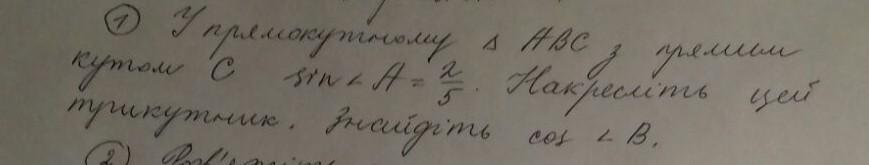 ① У прямокутному △ ABC з прямим
кутом C sin ∠ A = 2/5. Накресліть цей
трикутник. Знайдіть cos ∠ B.
②